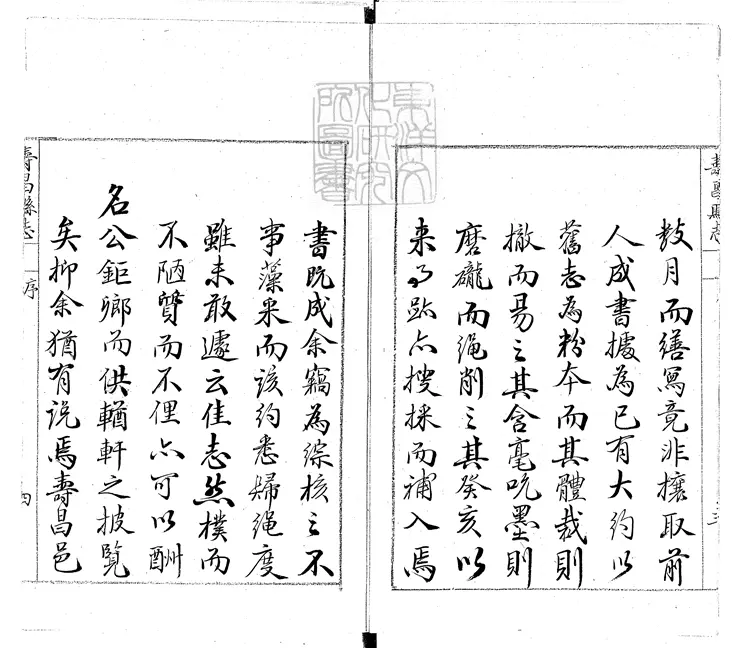 壽昌縣志
序
三
數月而繕寫竟非攘取前
人成書據為已有大約以
舊志為粉本而其體裁則
撤而易之其含毫吮墨則
磨礲而繩削之其癸亥以
来事跡亦搜採而補入焉
書既成余竊為綜核之不
事藻采而該約悉歸繩度
雖未敢遽云佳志然樸而
不陋質而不俚亦可以酬
名公鉅卿而供輶軒之披覽
矣抑余猶有说焉壽昌邑
壽昌縣志
序
四
東洋文
化研究
所圖書